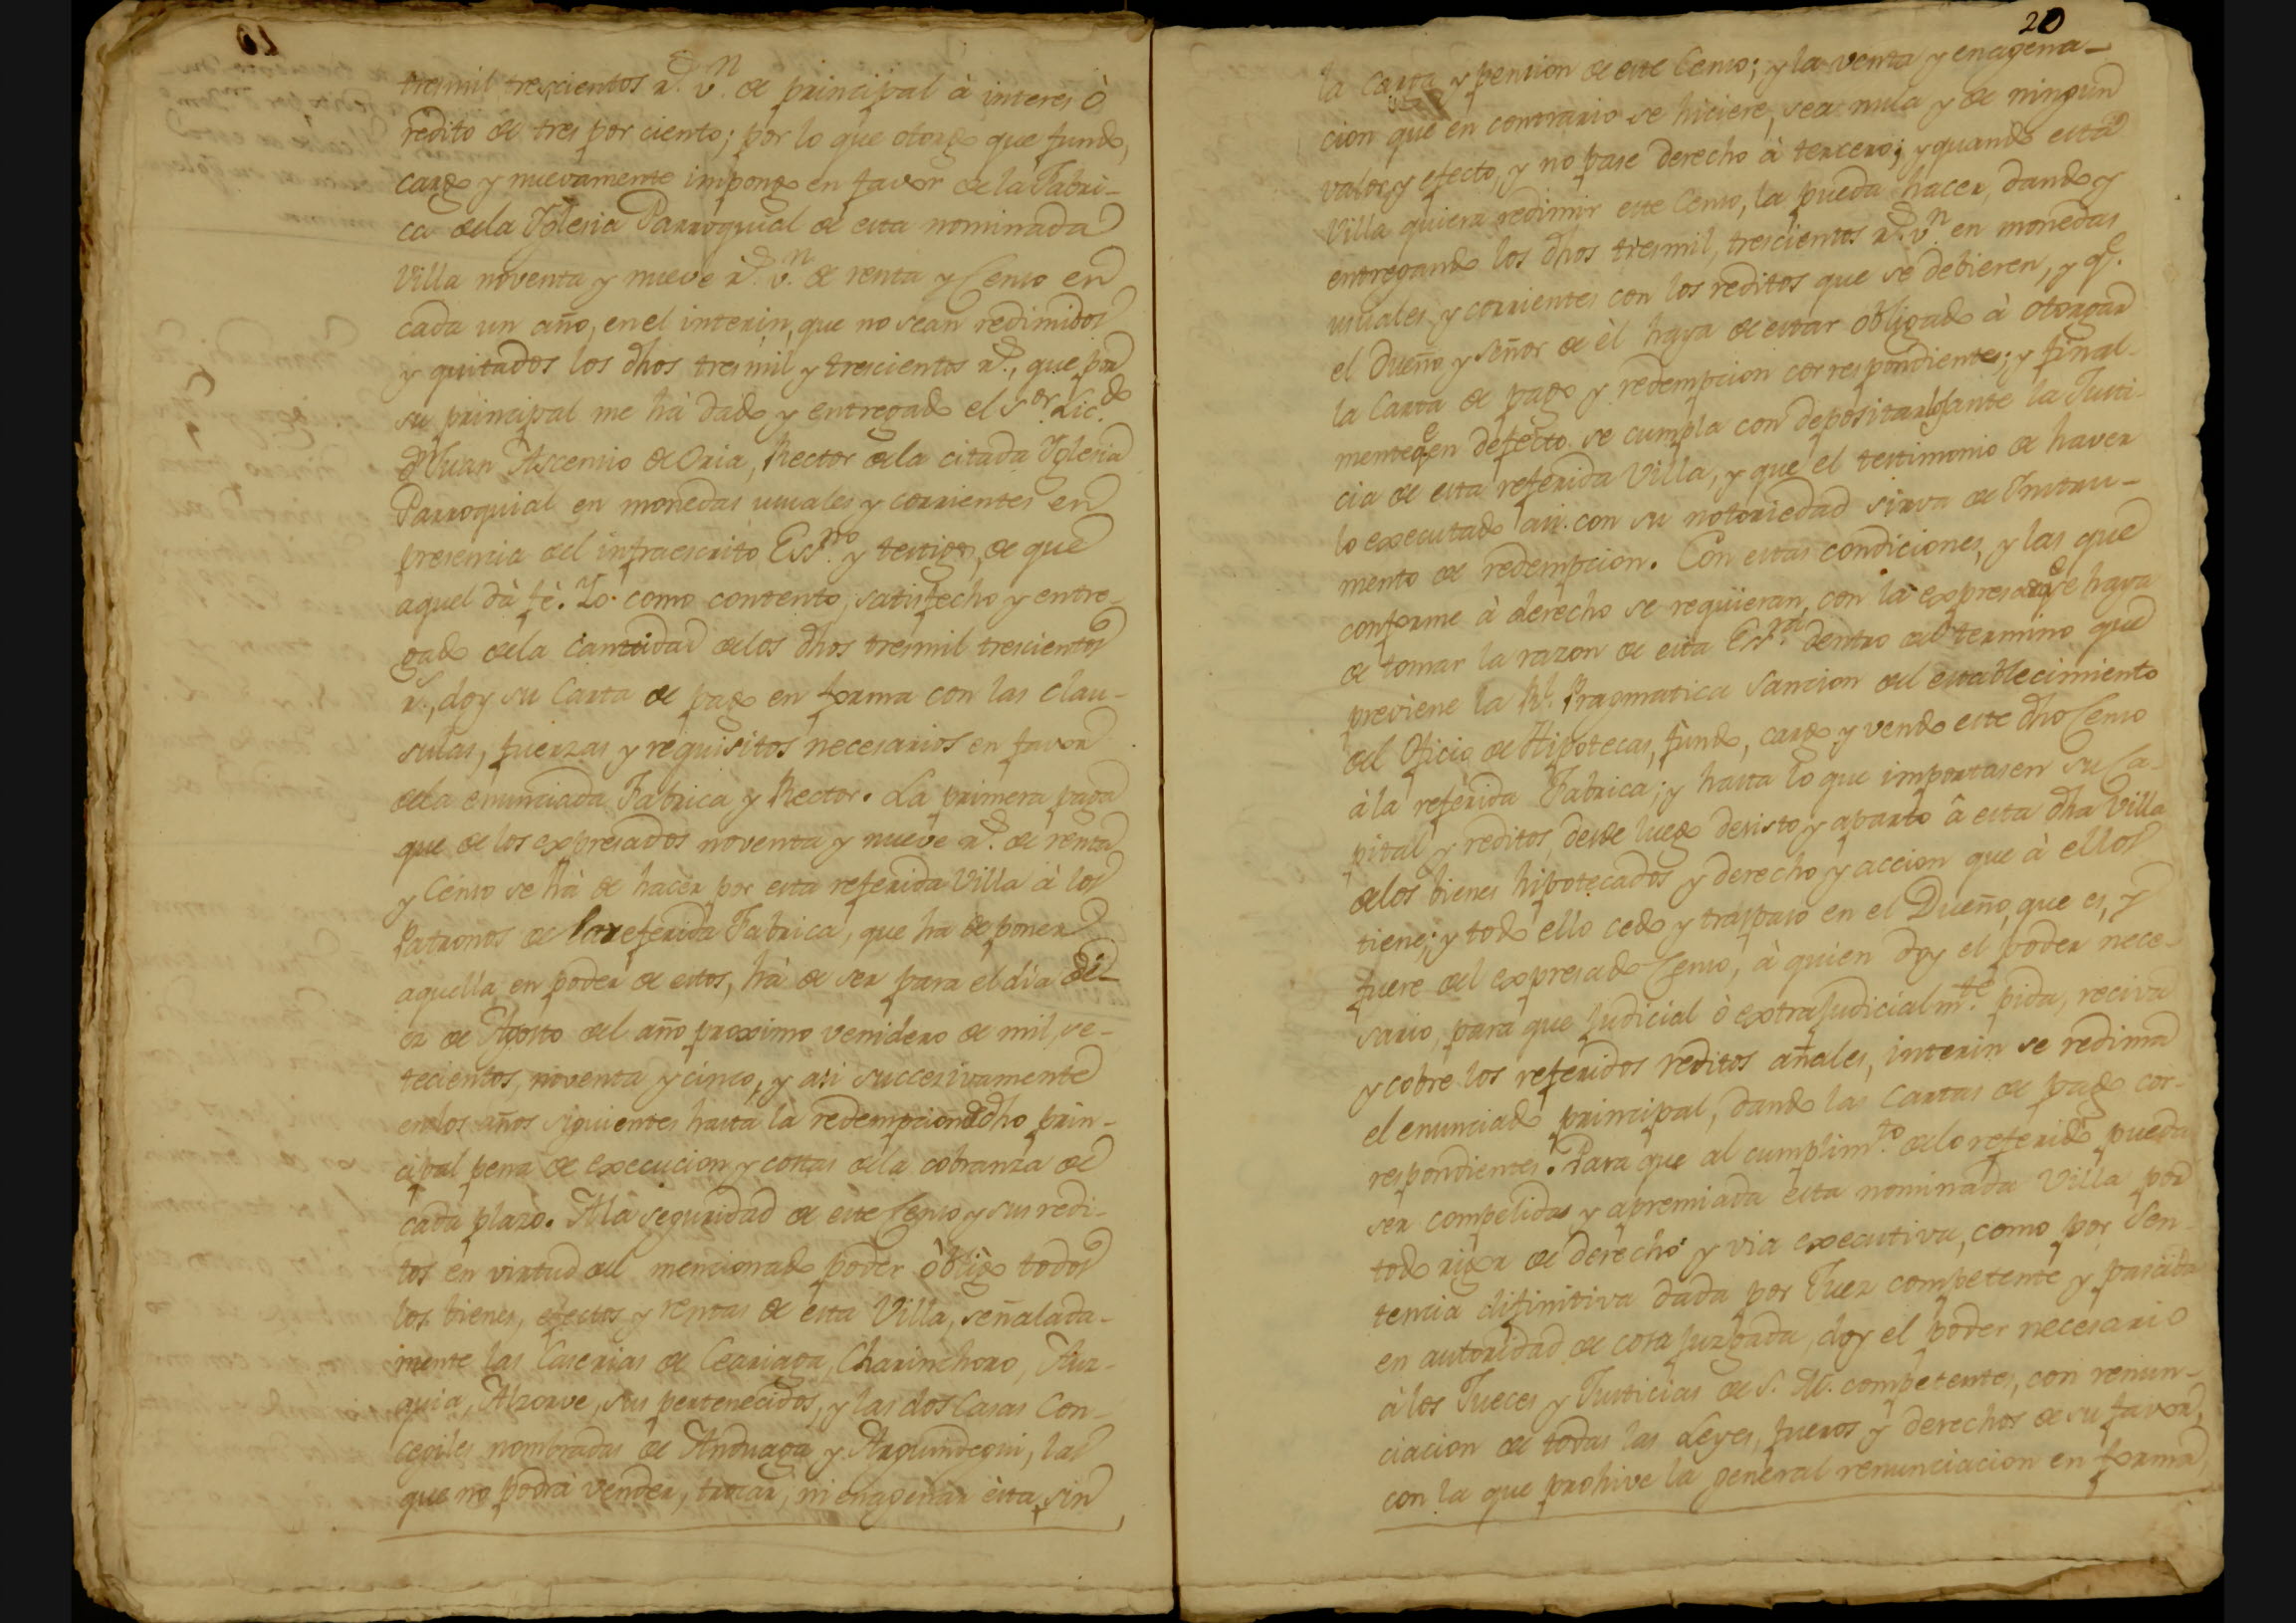 tresmil trescientos r.s v.n de principal à interes ò
redito de tres por ciento; por lo que otorgo que fundo,
cargo y nuevamente impongo en favor de la Fabri-
ca de la Yglesia Parroquial de esta nominada
Villa noventa y nueve r.s v.n de renta y Censo en
cada un año, en el interin, que no sean redimidos
y quitados los dhos tresmil y trescientos r.s, que por
su principal me há dado y entregado el S.or Lic.do
d.n Juan Ascensio de Oria, Rector de la citada Yglesia
Parroquial en monedas usuales y corrientes en
presencia del infraescrito Ess.no y testigos, de que
aquel dá fé. Yo como contento, satisfecho y entre-
gado de la cantidad de los dhos tresmil trescientos
r.s, doy su Carta de pago en forma con las clau-
sulas, fuerzas y requisitos necesarios en favor
de la enunciada Fabrica y Rector. La primera paga
que de los expresados noventa y nueve r.s de renta
y Censo se há de hacer por esta referida Villa à los
Patronos de la referida Fabrica, que ha de poner
aquella en poder de estos, há de ser para el dia di-
ez de Agosto del año proximo venidero de mil, se-
tecientos, noventa y cinco, y asi succesivamente
en los años siguientes hasta la redempcion de dho prin-
cipal pena de execucion y costas de la cobranza de
cada plazo. A la seguridad de este Censo y sus redi-
tos en virtud del mencionado poder òbligo todos
los bienes, efectos y rentas de esta Villa, señalada-
mente las Caserias de Ceariaga, Charinchoro,
quia, Alzorve, sus pertenecidos, y las dos Casas Con-
cegiles nombradas de Anduaga y Argundegui, las
que no podrà vender, trocar, ni enagenar esta, sin
20
la Carga y pension de este Censo; y la venta y enagena-
cion que en contrario se hiciere, sea nula y de ningun
valor, y efecto, y no pase derecho à tercero; y quando esta
Villa quiera redimir este Censo, la pueda hacer, dando y
entregando los dhos tresmil, trescientos r.s v.n en monedas
usuales, y corrientes con los reditos que se debieren, y q.e
el Dueño y Señor de èl haya de estar obligado à otorgar
la Carta de pago y redempcion correspondientes; y final-
mente q.e en defecto se cumpla con depositarlos ante la Justi-
cia de esta referida Villa, y que el testimonio de haver
lo executado asi con su notoriedad sirva de Instru-
mento de redempcion. Con estas condiciones, y las que
conforme à derecho se requieran, con la expresa de q.e se haya
de tomar la razon de esta Ess.ra dentro del termino, que
previene la R.l Pragmatica Sancion del establecimiento
del Oficio de Hipotecas, fundo, cargo y vendo este dho Censo
à la referida Fabrica; y hasta lo que importasen su Ca-
pital y reditos, desde luego desisto y aparto à esta dha Villa
de los bienes hipotecados y derecho y accion que à ellos
tiene; y todo ello cedo y traspaso en el Dueño, que es, y
fuere del expresado Censo, à quien doy el poder nece-
sario, para que judicial ò extrajudicialm.te pida, reciva
y cobre los referidos reditos añales, interin se redima
el enunciado principal, dando las Cartas de pago cor-
respondientes. Para que al cumplim.to de lo referido pueda
ser compelida y apremiada esta nominada Villa por
todo rigor de derecho y via executiva, como por Sen-
tencia difinitiva dada por Juez competente y pasada
en autoridad de cosa juzgada, doy el poder necesario
à los Jueces y Justicias de S. M. competentes, con renun-
ciacion de todas las Leyes, fueros y derechos de su favor,
con la que prohive la general renunciacion en forma,